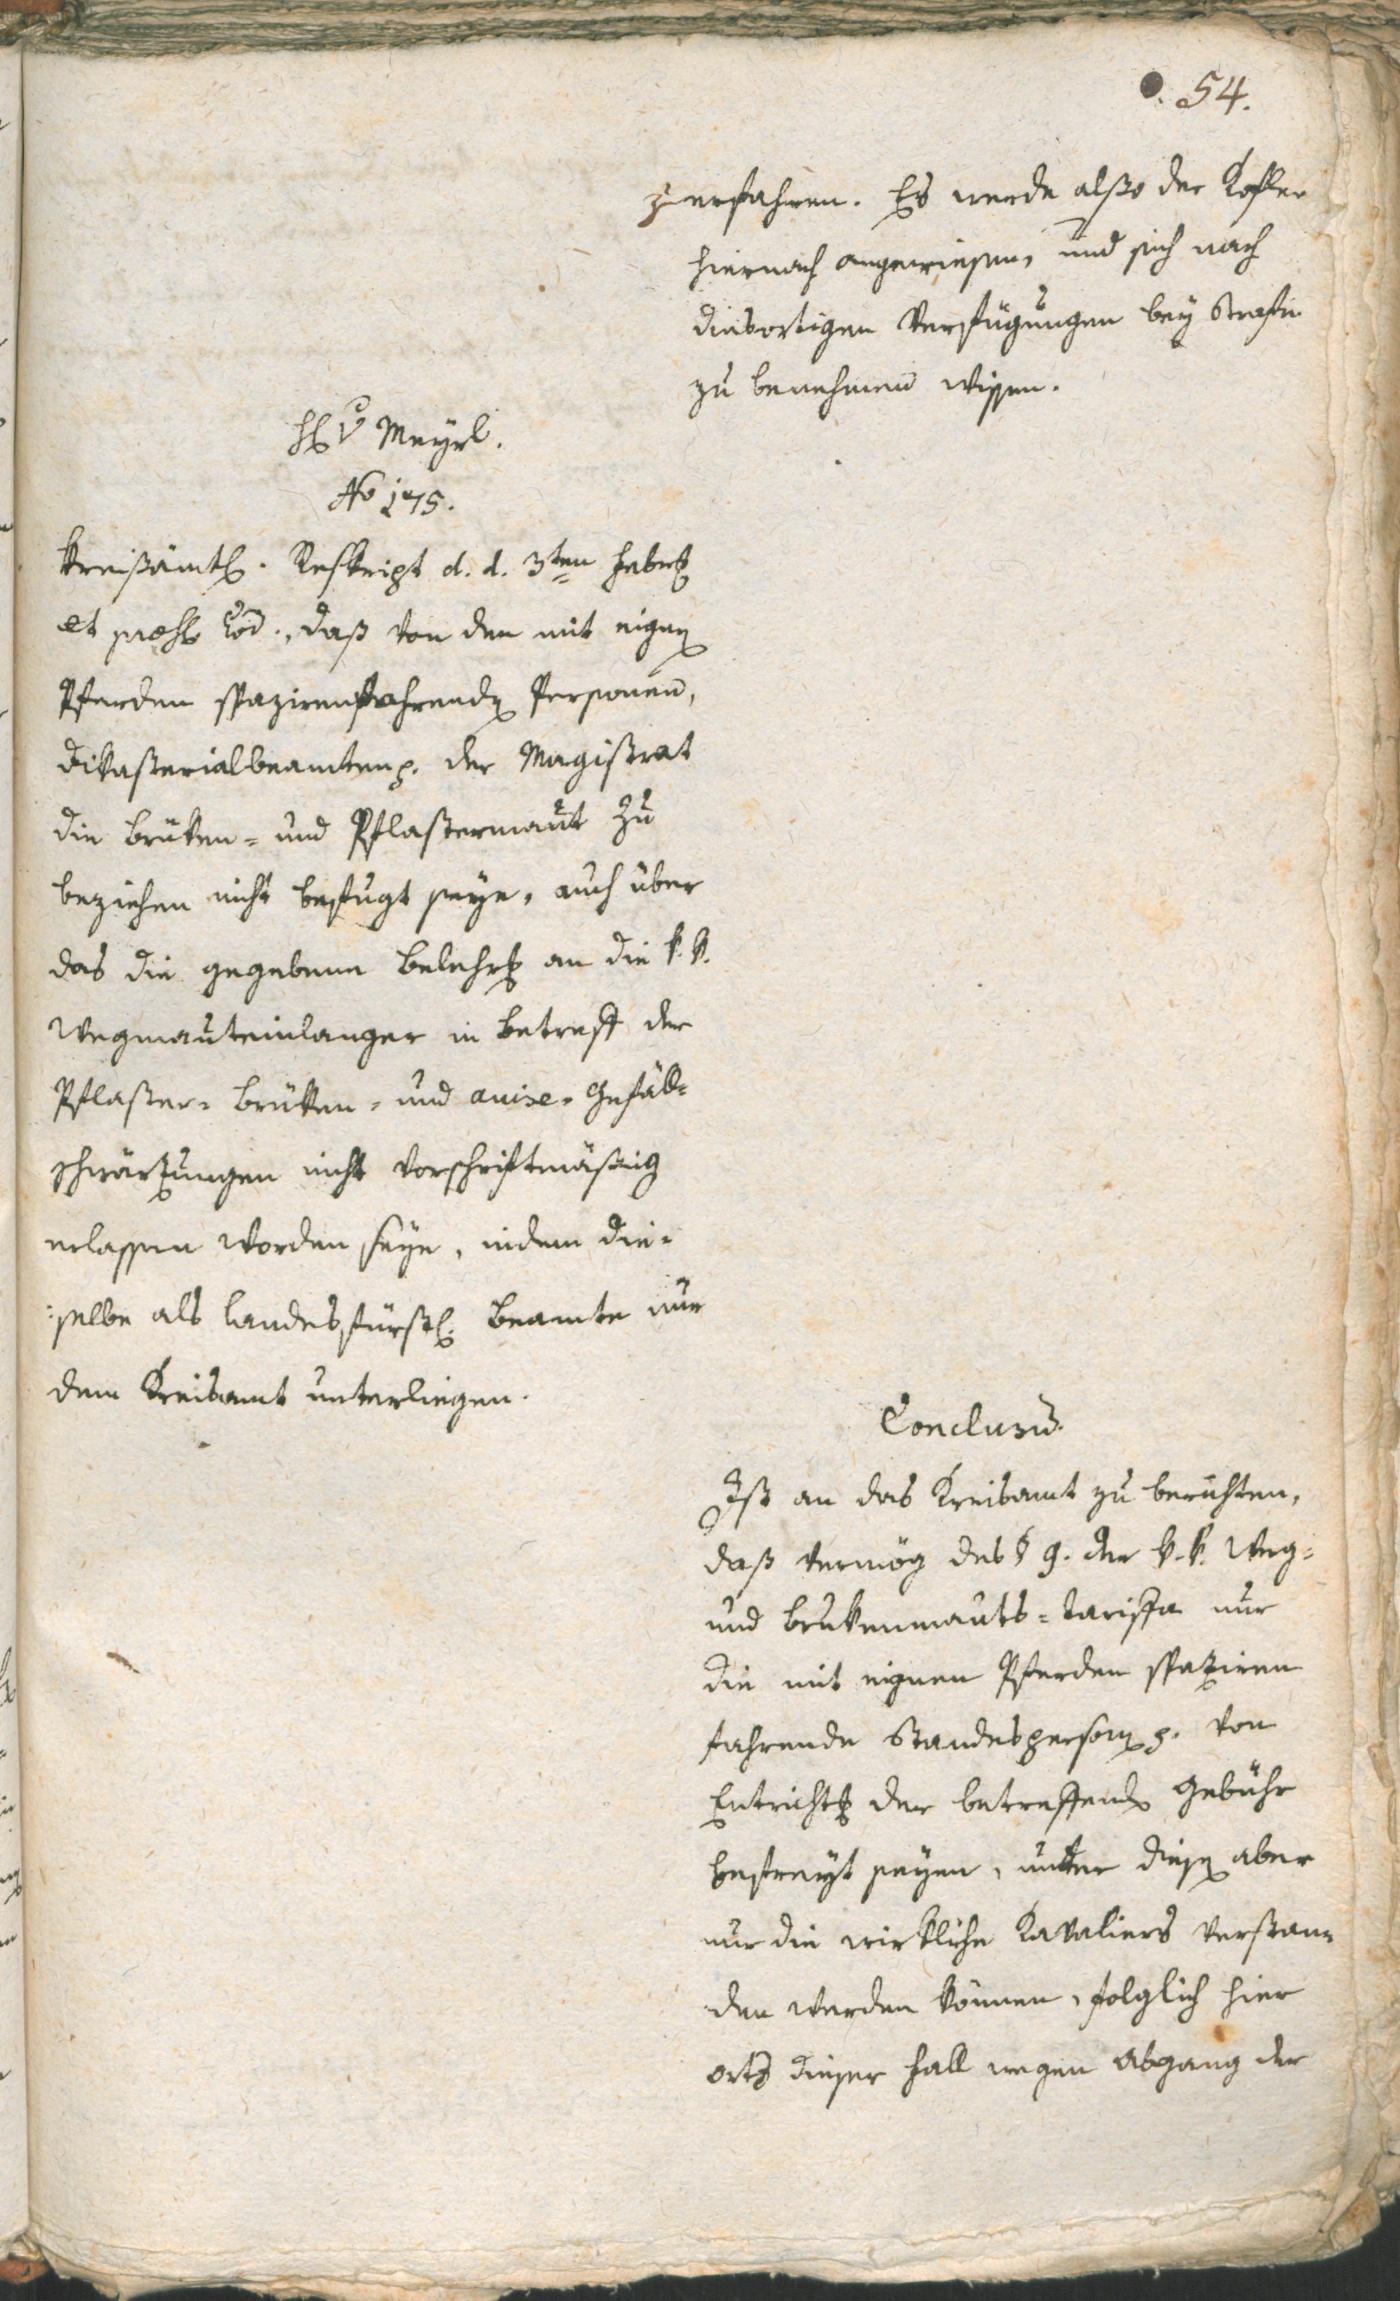 54.
zuerfahren. Es werde alßo der Kofler
hiernach angewiesen, und sich nach
diesortigen Verfügungen bey Strafe
zu benehmen wissen.
H v Meyrl.
No 175.
Kreißämtl. Reskript d. d. 3ten Febr
et præs eod., daß von den mit eigen
Pferden spazirenfahrenden Personen,
Dikasterialbeamten p. der Magistrat
die Brüken- und Pflastermaut zu
beziehen nicht befugt seye, auch über
das die gegebene Belehrung an die k. k.
Wegmauteinlanger in Betreff der
Pflaster- Brüken- und Gefäll-
schwärzungen nicht vorschriftmäßig
erlassen worden seye, indem die-
selbe als Landesfürstl. Beamte nur
dem Kreisamt unterliegen.
Conclusum.
Ist an das Kreisamt zu berichten,
daß vermög des § 9. der k. k. Weg-
und Brukenmauts-tariffa nur
die mit eignen Pferden spaziren
fahrende Standespersonen p. von
Entrichtung der betreffenden Gebühr
befreyt seyen, unter diesen aber
nur die wirkliche Kavaliers verstan-
den werden können, folglich hier
orts dieser Fall wegen Abgang der